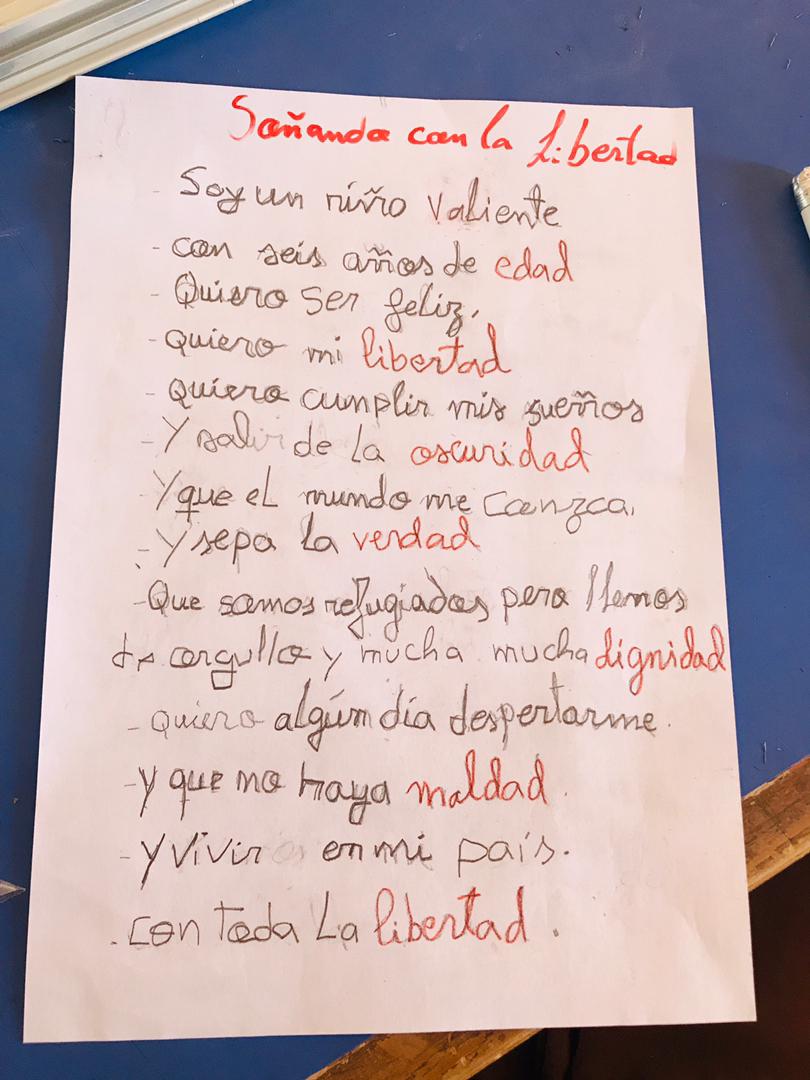 Soñando con la Libertad
- Soy un niño valiente
- con seis años de edad
- Quiero ser feliz,
- quiero mi libertad
- quiero cumplir mis sueños
- Y salir de la oscuridad
- Y que el mundo me conzca,
- Y sepa la verdad
- Que somos refugiados pero llemos
de orgullo y mucha mucha dignidad
- quiero algún día despertarme.
- y que no haya maldad.
- y vivir en mi país.
. con toda La libertad.